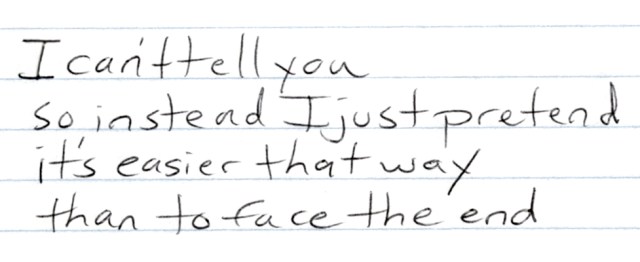 I can't tell you
so instead I just pretend
it's easier that way
than to face the end